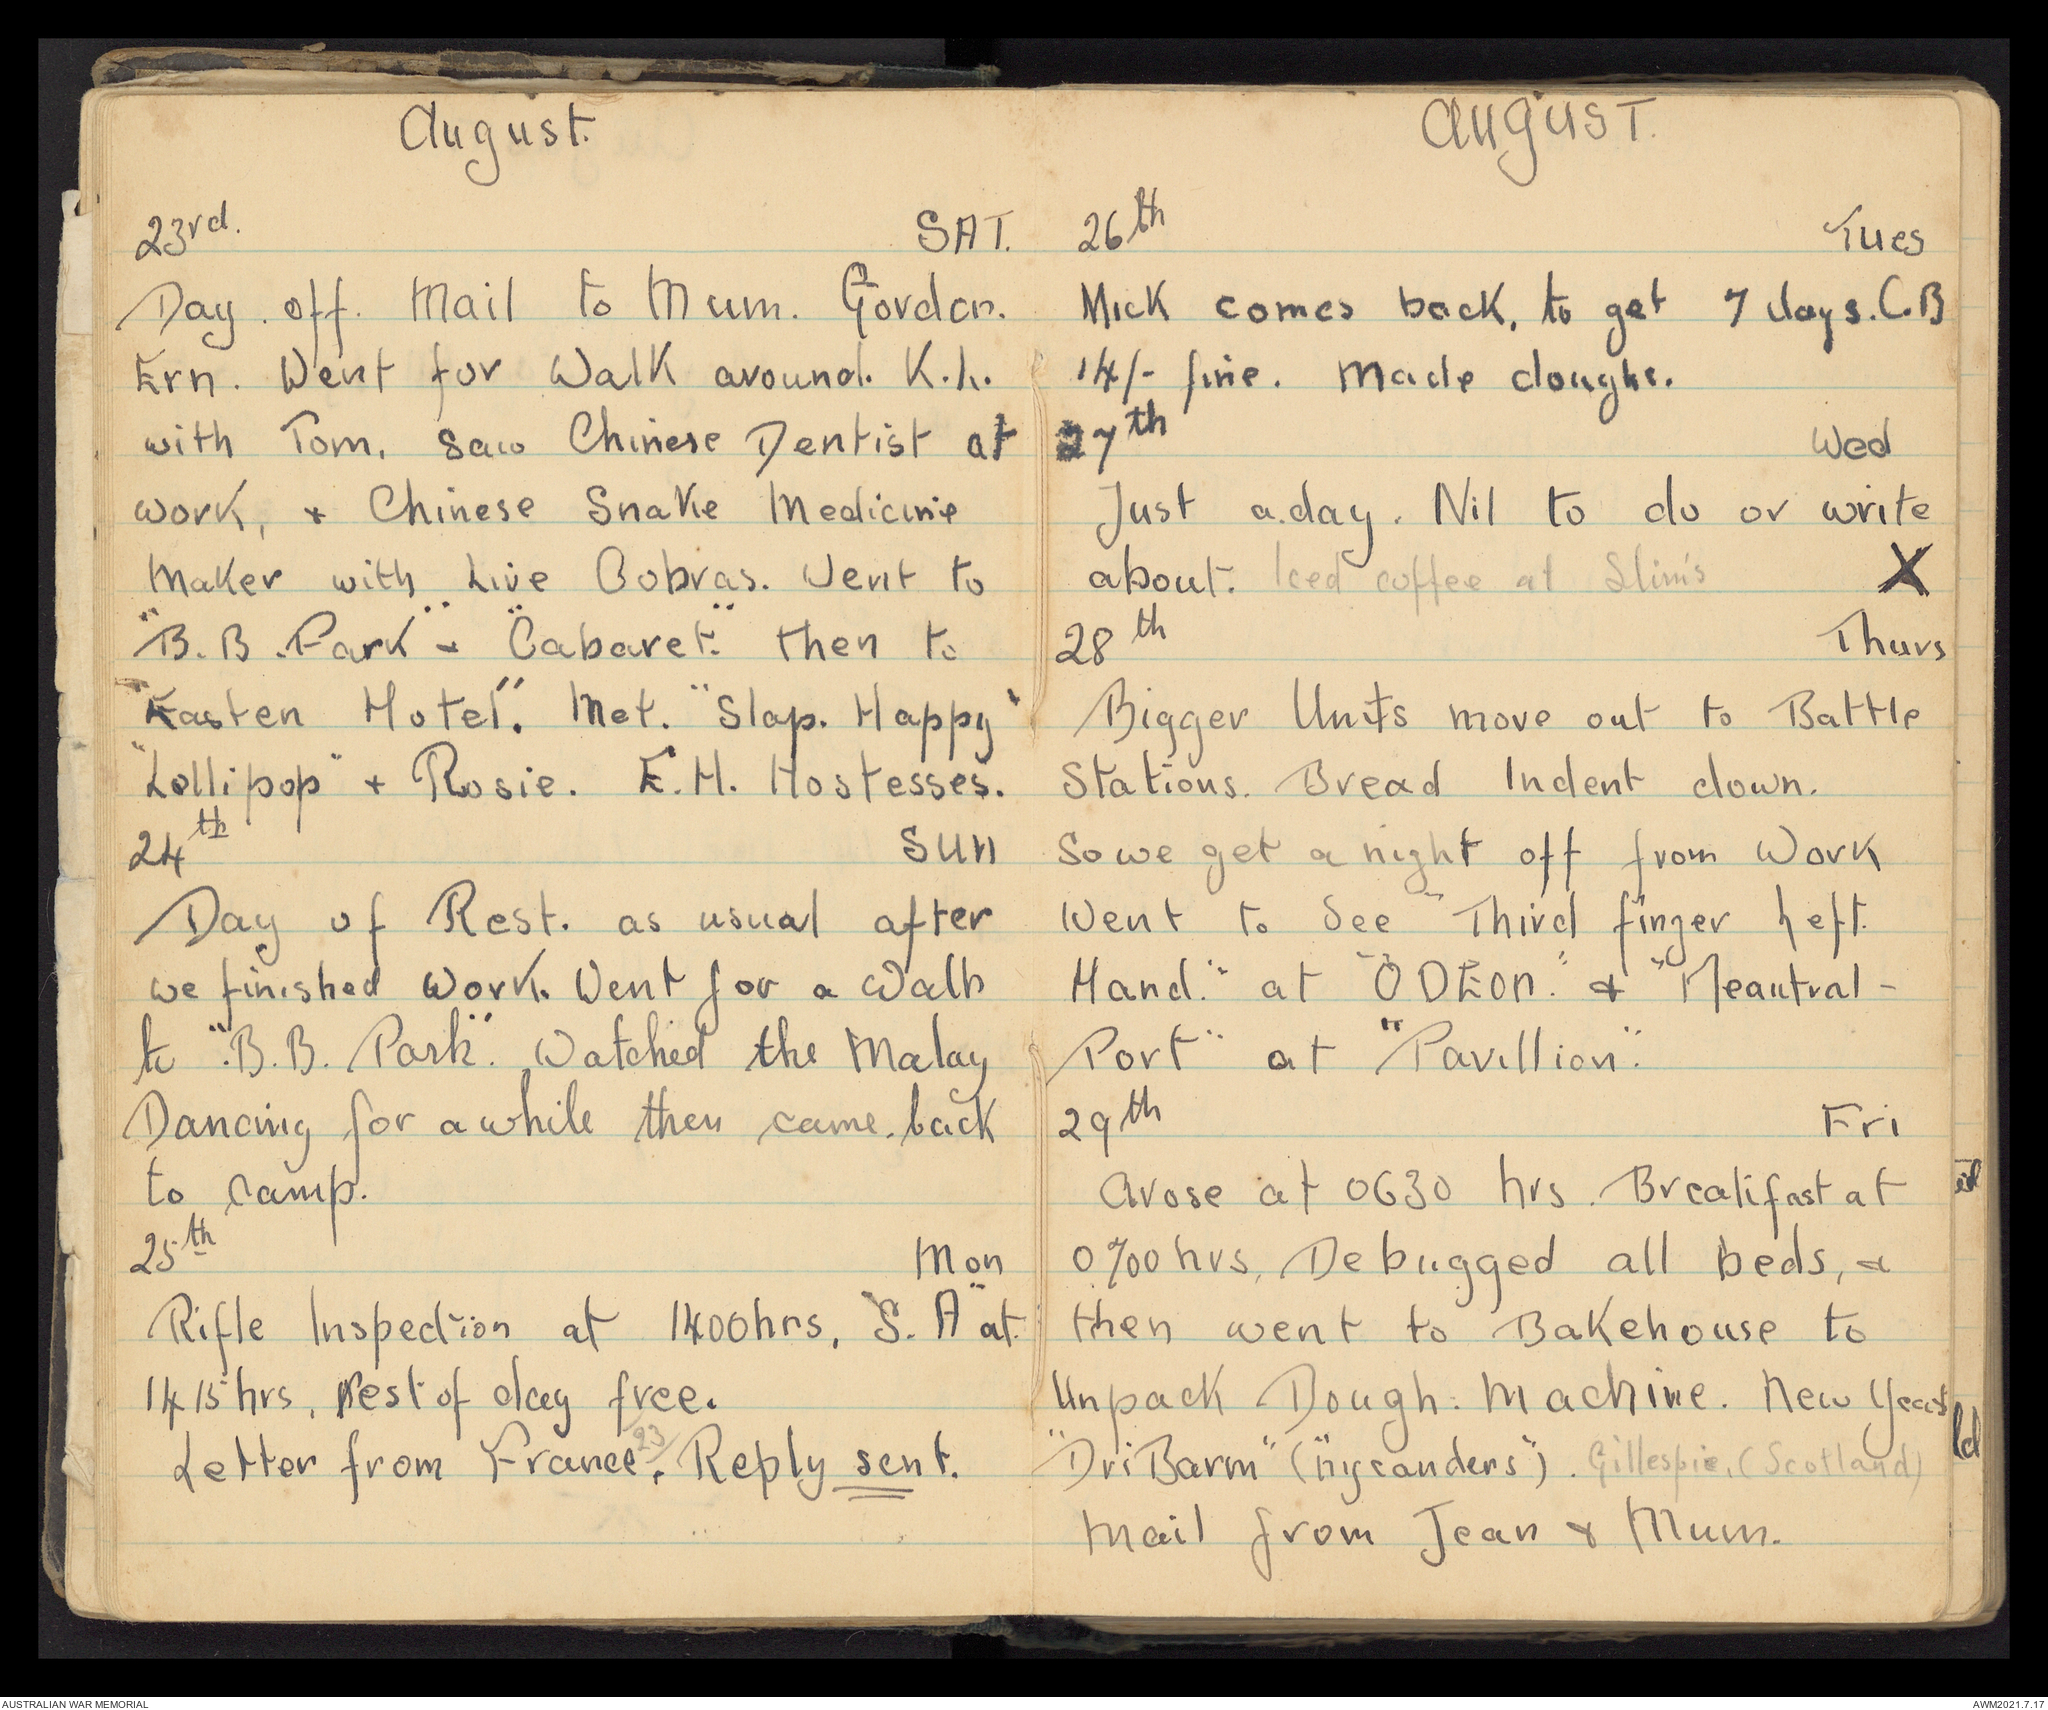 August.
23rd. SAT.
Day off. Mail to Mum. Gordon.
Ern. Went for Walk around. K.L.
with Tom. Saw Chinese Dentist at
work, + Chinese Snake Medicine
Maker with Live Cobras. Went to
"B.B. Park" + "Cabaret." then to
"Easten Hotel". Met. "Slap. Happy"
"Lollipop" + Rosie. E.H. Hostesses.
24th SUN
Day of Rest. as usual after
we finished Work. Went for a Walk
to "B.B. Park". Watched the Malay
Dancing for a while then came back
to camp.
25th Mon
Rifle Inspection at 1400hrs, "S.A" at
1415hrs, Rest of day free.
Letter from France 23/. Reply sent.
August.
26th Tues
Mick comes back, to get 7 days. C.B
14/- fine. Made doughs.
27th Wed
Just a day. Nil to do or write
about. Iced coffee at Slim's X
28th Thurs
Bigger Units move out to Battle
Stations. Bread Indent down.
So we get a night off from Work
Went to See "Third finger Left
Hand." at "ODEON." + "Meautral-
Port" at "Pavillion".
29th Fri
Arose at 0630 hrs. Breakfast at
0700hrs, Debugged all beds, +
then went to Bakehouse to
Unpack Dough. Machine. New Yeast
"DriBarm" ("nycanders"). Gillespie. (Scotland)
Mail from Jean + Mum.
ld
AUSTRALIAN WAR MEMORIAL
AWM2021.7.17